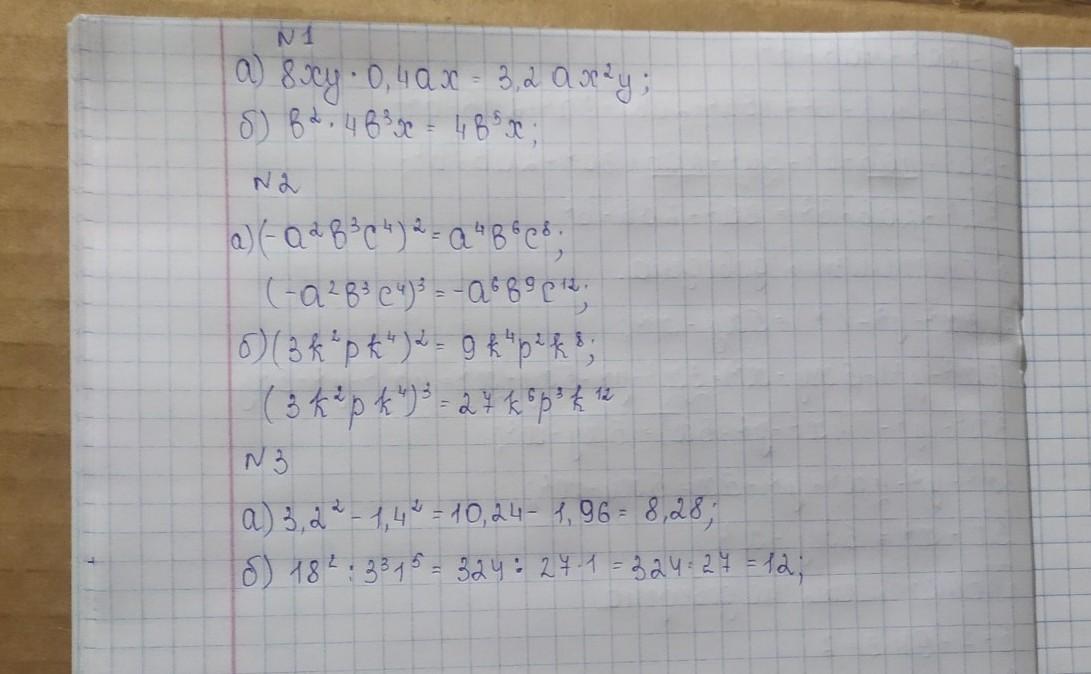 N1
а) 8xy · 0,4ax = 3,2ax²y;
б) b² · 4b³x = 4b⁵x;
N2
а) (-a²b³c⁴)² = a⁴b⁶c⁸;
(-a²b³c⁴)³ = -a⁶b⁹c¹²;
б) (3k²pk⁴)² = 9k⁴p²k⁸;
(3k²pk⁴)³ = 27k⁶p³k¹²
N3
а) 3,2² - 1,4² = 10,24 - 1,96 = 8,28;
б) 18² : 3³1⁵ = 324 : 27·1 = 324 : 27 = 12;